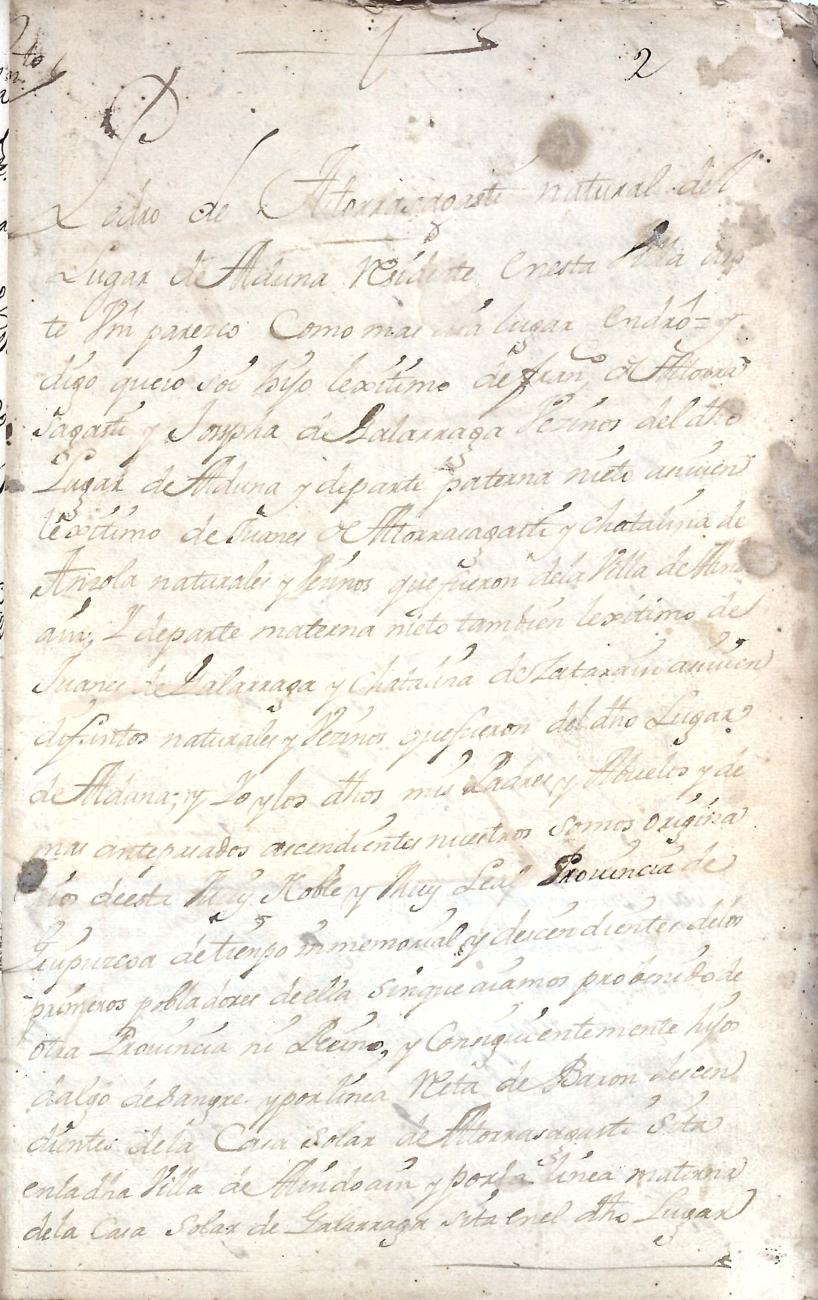 2
Pedro de Atorrasagasti natural del
Lugar de Alduna Residente enesta Villa an
te Vm paresco Como mas aia lugar endro = y
digo queio soi hijo lexitimo de fran.co de Attorra
sagasti y Josepha de Galarraga Vezinos del dho
Lugar de Alduna y departe paterna nieto asimien
lexitimo de Juanes de Attorrasagasti y Chatalina de
Anzola naturales y Vezinos que fueron dela Villa de Aind
ain, Y departe materna nieto tambien lexitimo de
Juanes de Galarraga y Chatalina de Zatarain asimien
difuntos naturales y Vezinos quefueron del dho Lugar
de Alduna; y Yo ylos dhos mis Padres y Abuelos y de
mas antepasados ascendientes nuestros somos origina
rios deesta Muy Noble y Muy Leal Provincia de
Guipuzcoa detiempo inmemorial, y descendientes delos
primeros pobladores deella sinque aiamos probenido de
otra Provincia ni Reino, y Consiguientemente hijos
dalgo desangre yporlinea Reta de Baron descen
dientes dela Casa solar de Attorrasagasti sita
enladha Villa de Aindoain y porla linea materna
dela Casa Solar de Galarraga sita enel dho Lugar